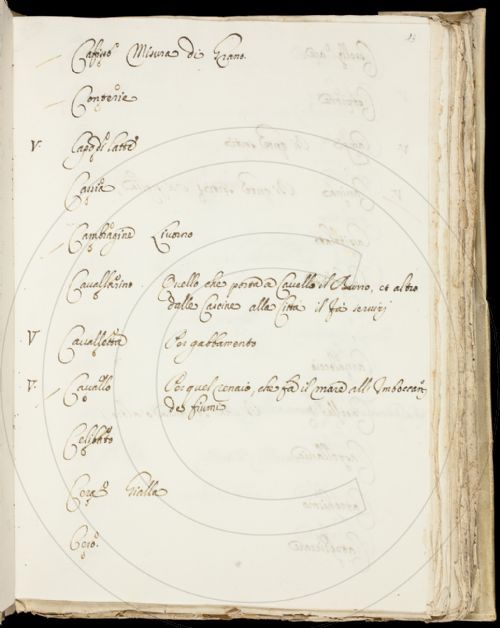 Misura di Grano.
Conterie
V. Capo di latte
Cavia
Cambiagine Livorno
Cavallarino. Quello che porta a Cavallo il Burro, et altro
dalle Cascine alla Città il fà servirsi
V Cavalletta Per gabbamento
V. Cavallo Per quel renaio, che fà il mare all'Imboccar
de fiumi
Cera Gialla
Cero.